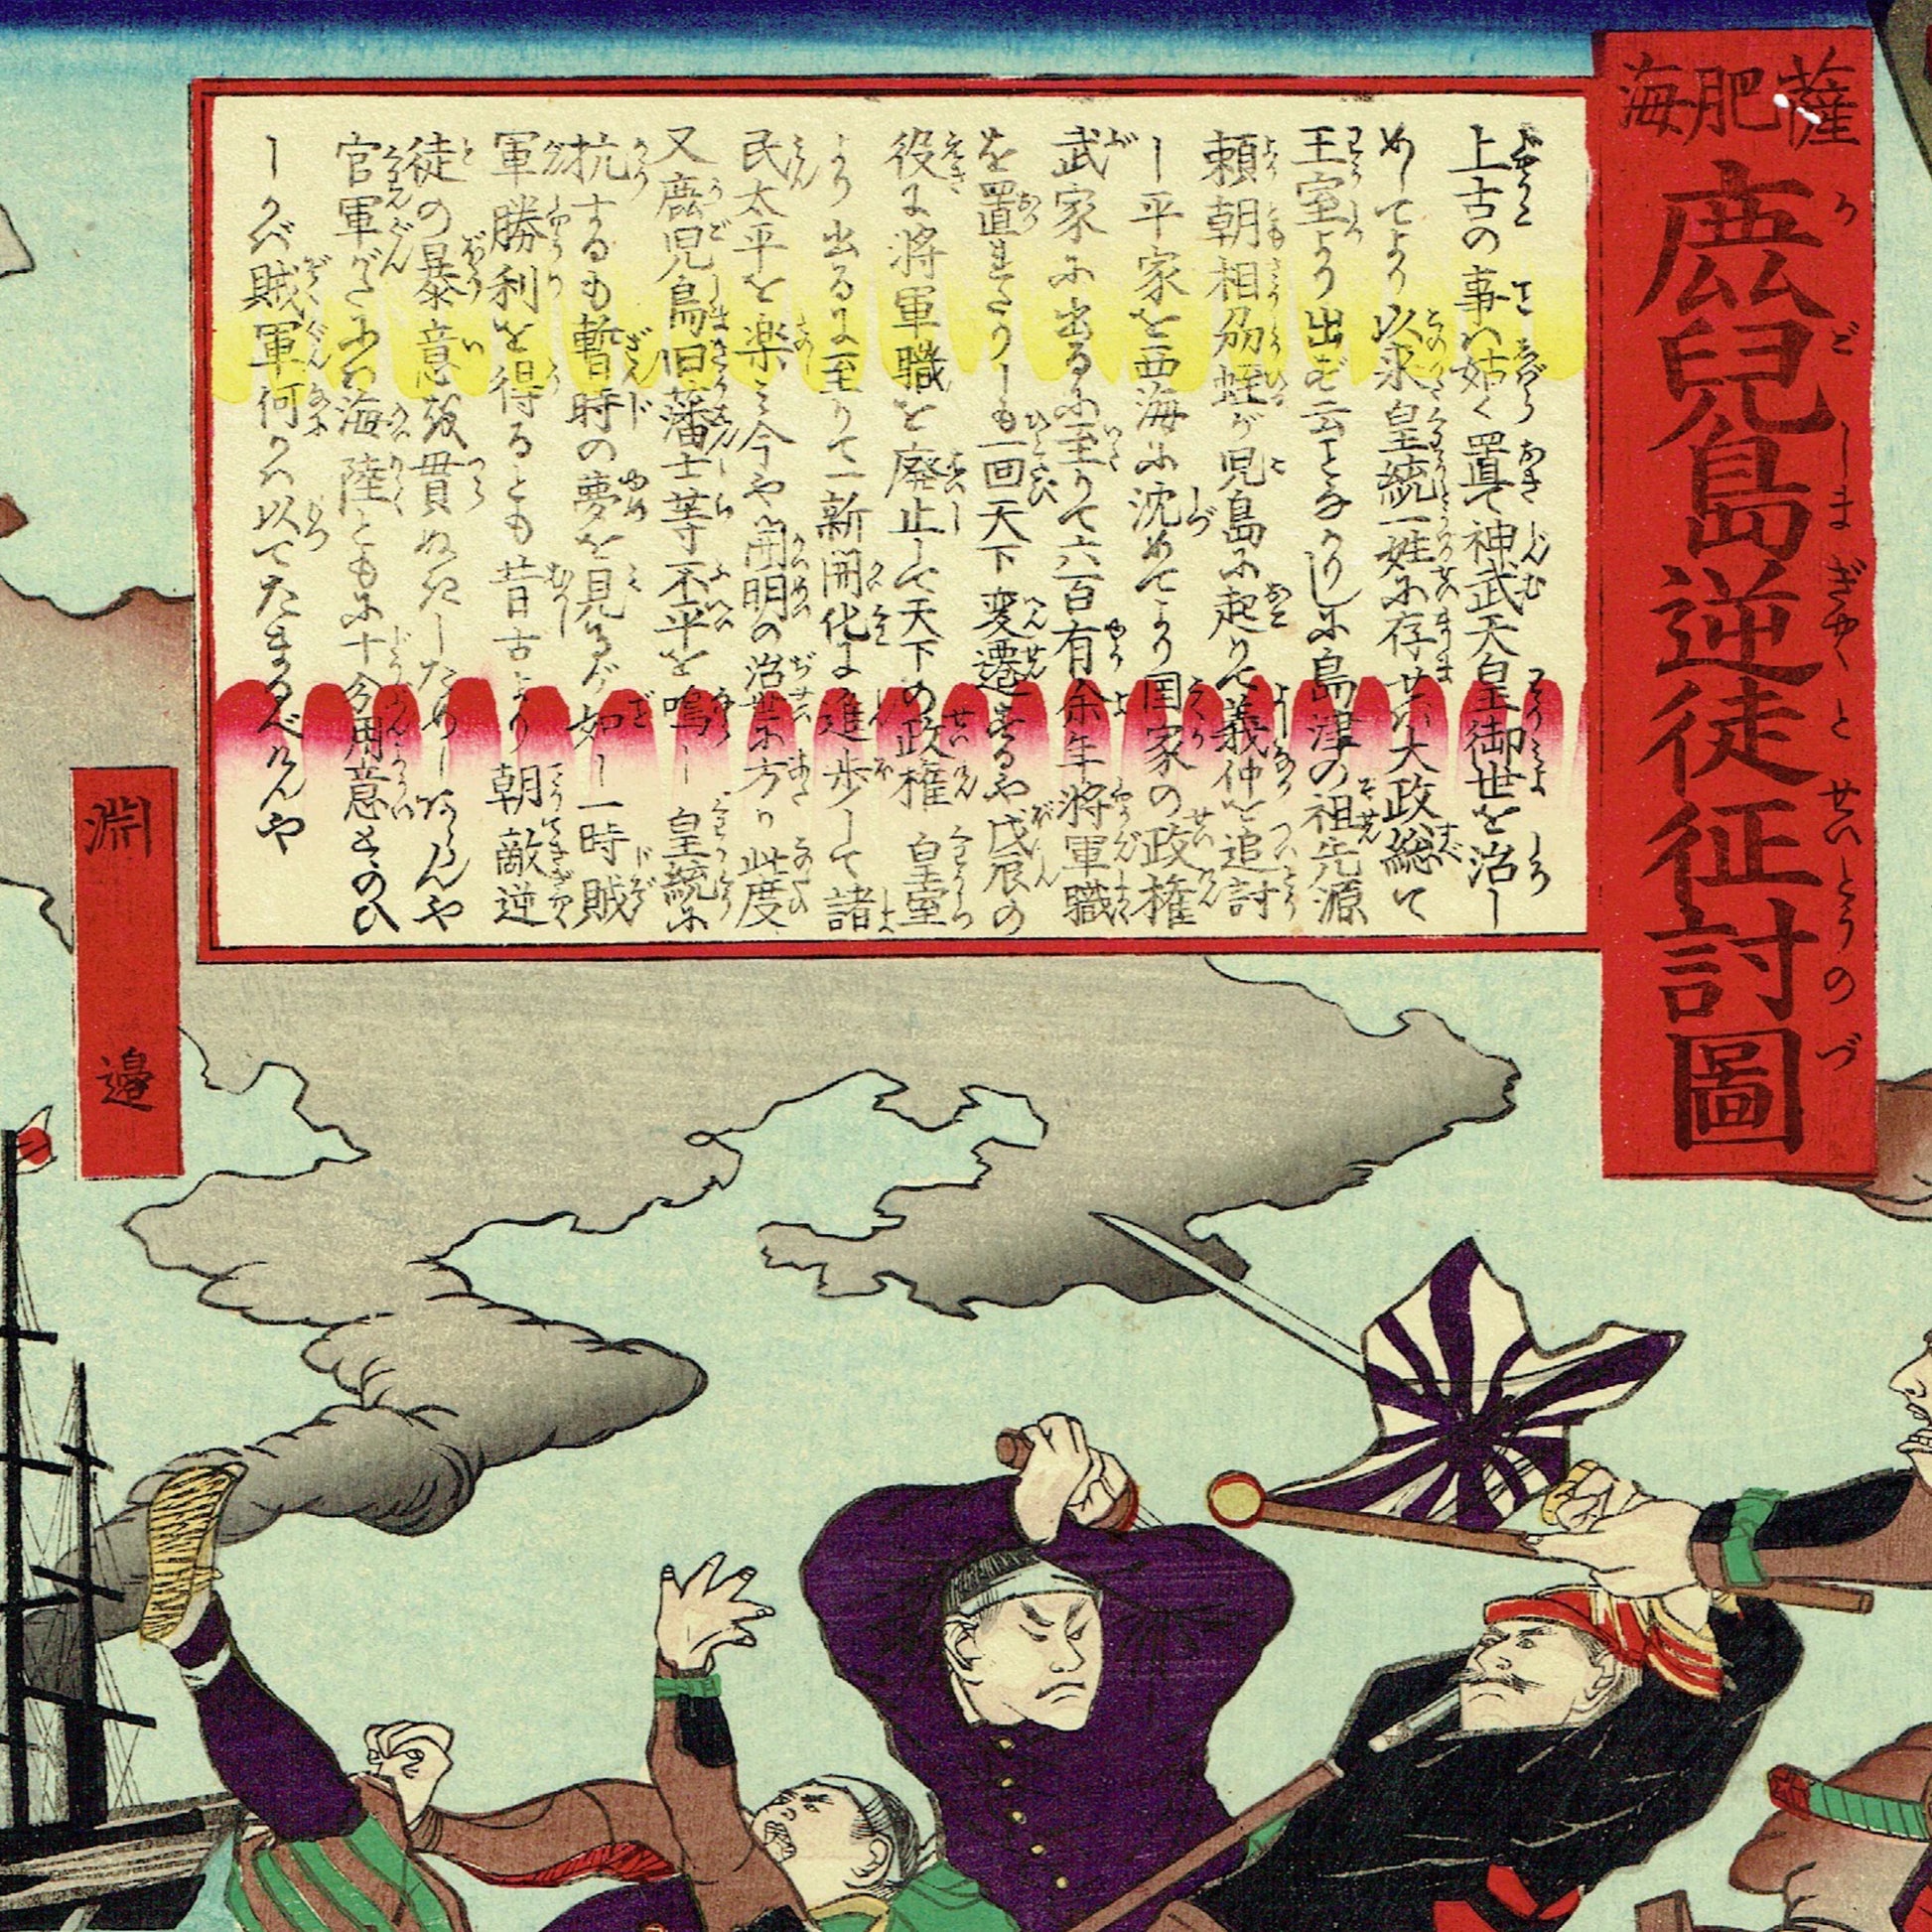 薩肥海
鹿児島逆徒征討圖
かごしまぎやくとせいとうのづ
上古の事ハ姑く置て神武天皇御世を治し
めしてより以来皇統一姓に存せバ大政総て
王室より出ざ云となかりしに島津の祖先源
頼朝相刕蛭が児島に起りて義仲を追討
し平家を西海に沈めてより国家の政権
武家に出るに至りて六百有余年将軍職
を置れたりしも一回天下変遷するや戊辰の
役に将軍職を廃止して天下の政権皇室
より出るに至りて一新開化に進歩して諸
民太平を楽ミ今や開明の治世に方り此度
又鹿児島旧藩士等不平を鳴し皇統に
抗するも暫時の夢を見るが如し一時賊
軍勝利を得るとも昔古より朝敵逆
徒の暴意を貫ぬきしためしあらんや
官軍がたにハ海陸ともに十分用意とゝのひ
しかバ賊軍何かハ以てたまるべけんや
淵邉